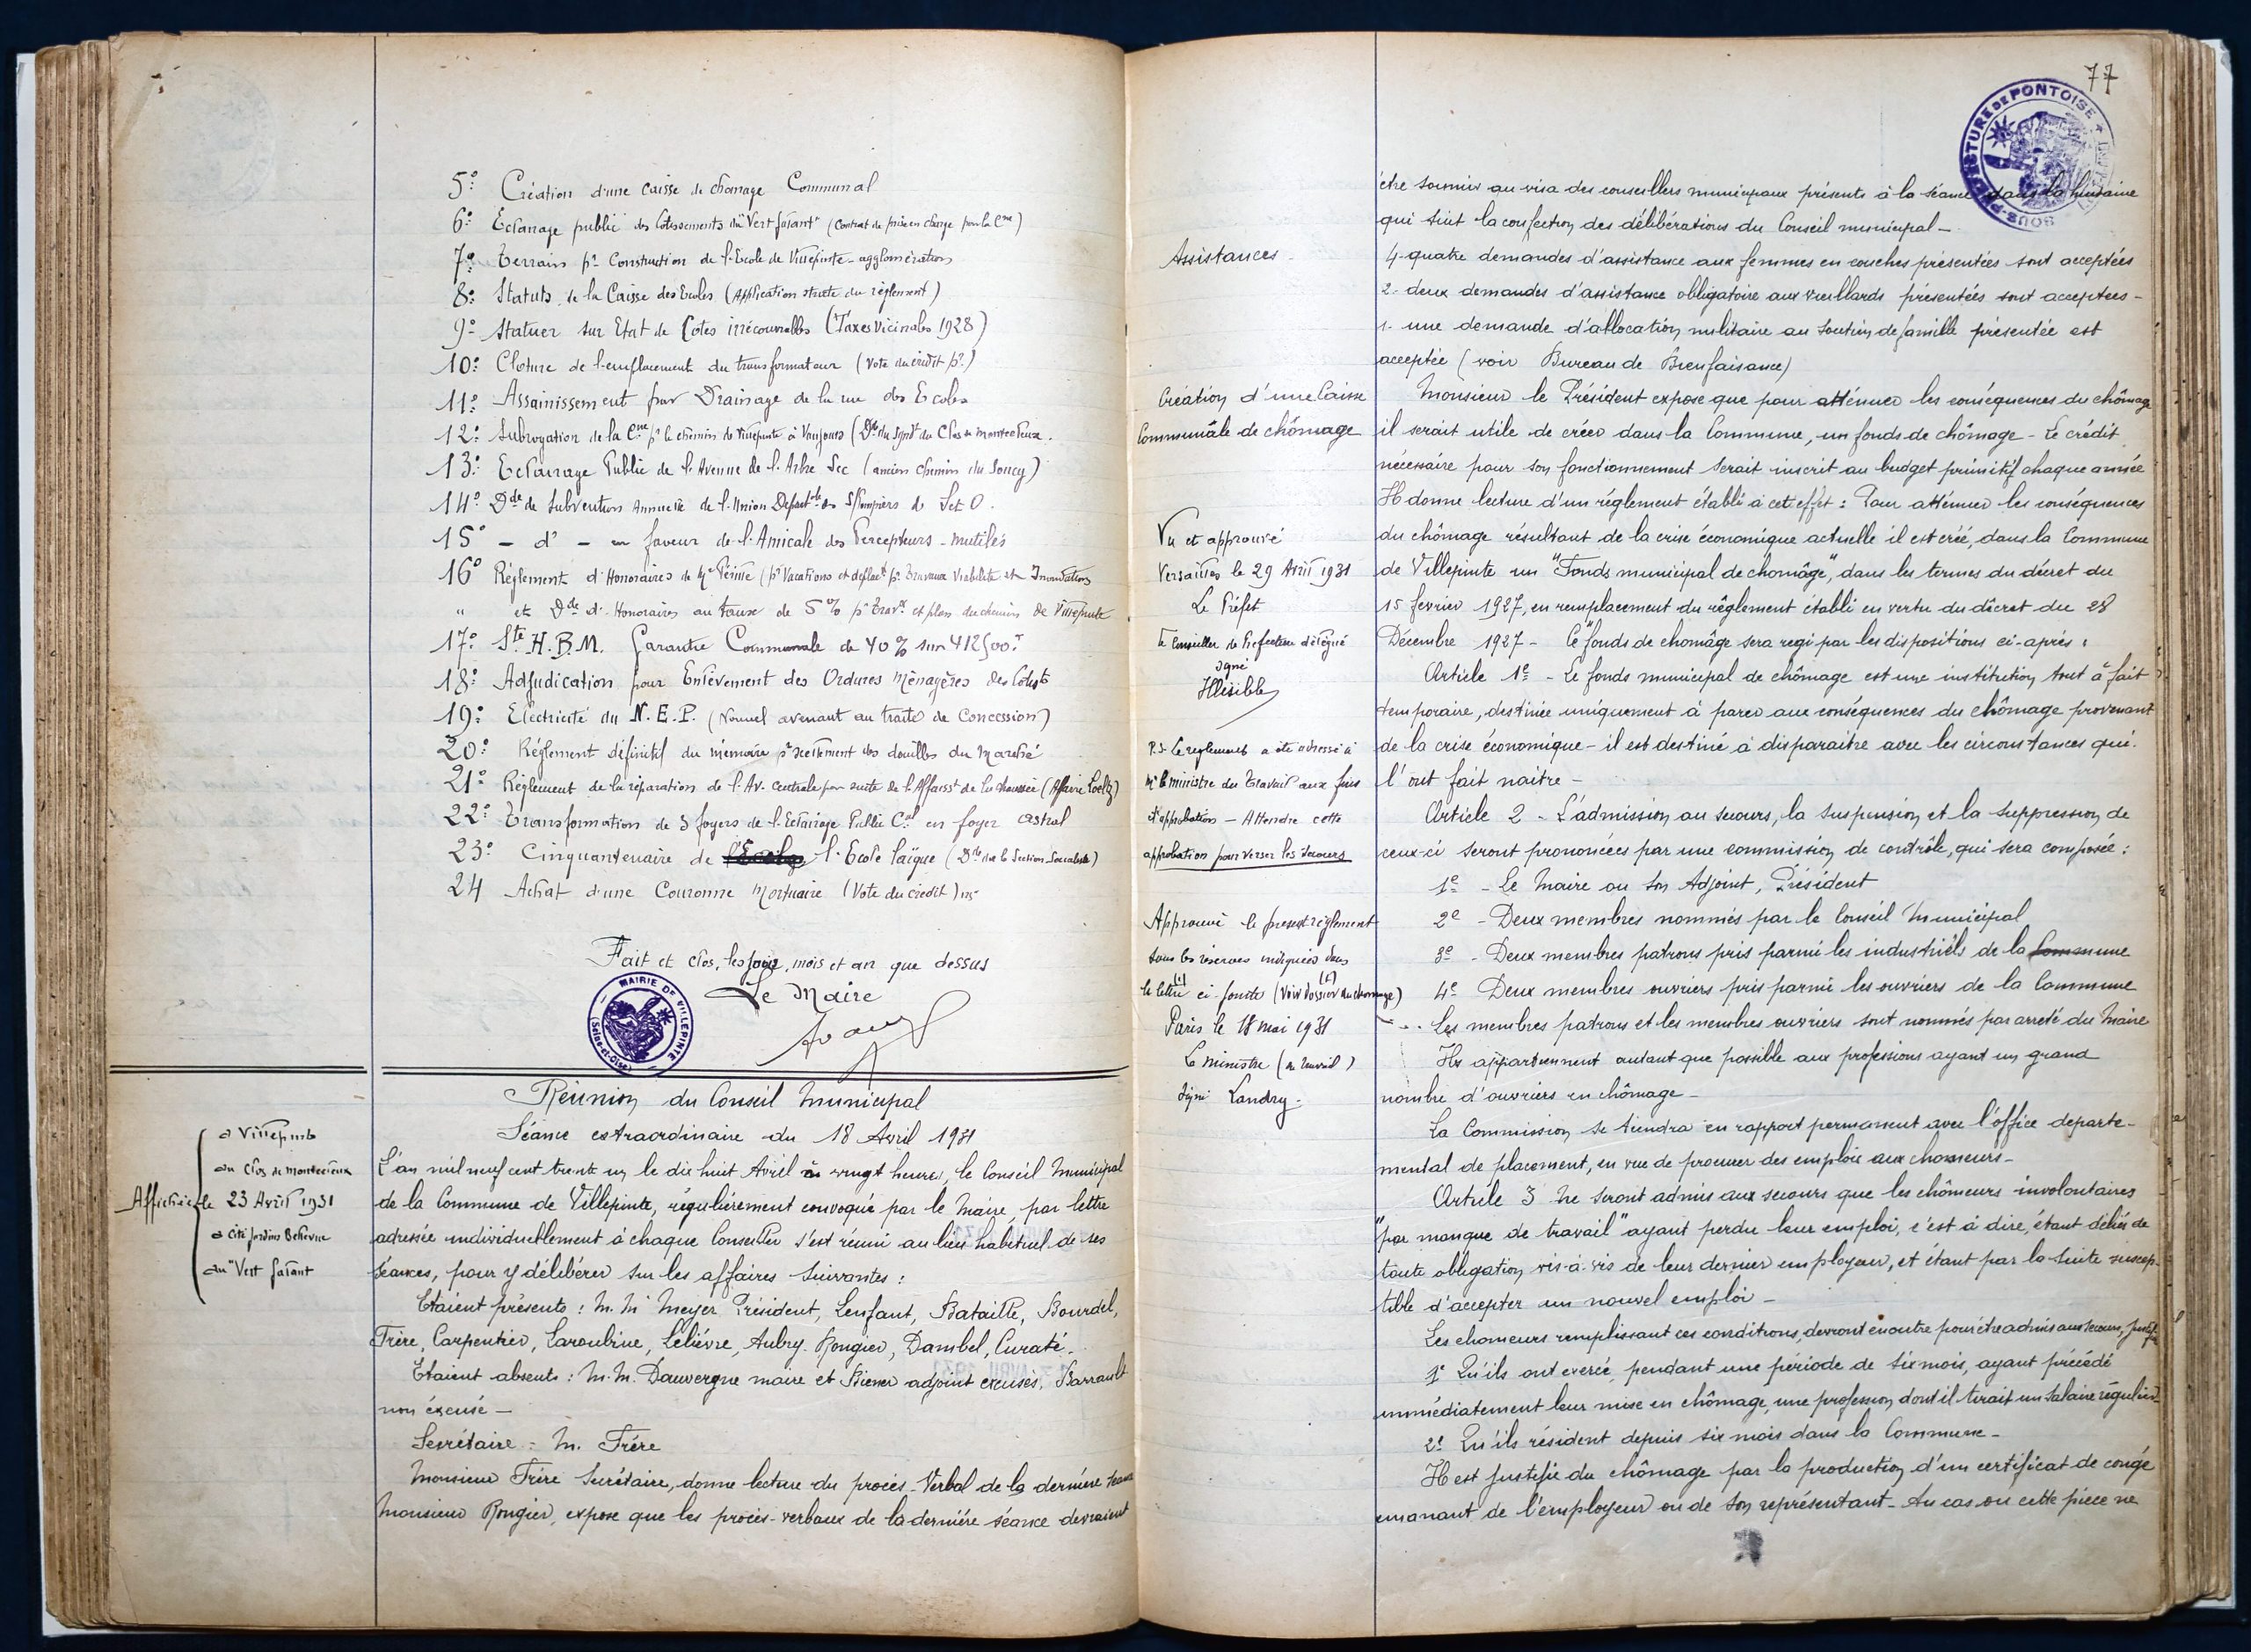 5° Création d'une caisse de chomage Communal
6° Eclairage public des lotissements du Vert Galant (Contrat de prise en charge par la Cne)
7° Terrain pr Construction de l'Ecole de Villepinte-agglomération
8° Statuts de la Caisse des Ecoles (Application stricte du règlement)
9° Statuer sur Etat de Cotes irrécouvrables (Taxes Vicinales 1928)
10° Cloture de l'emplacement du transformateur (Vote du crédit pr)
11° Assainissement par Drainage de la rue des Ecoles
12° Subrogation de la Cne pr le chemin de Villepinte à Vaujours (Dde du Syndt du Clos de Montceleux.
13° Eclairage Public de l'Avenue de l'Arbre Sec (ancien chemin du Soucy)
14° Dde de Subvention Annuelle de l'Union Départle des S/Pompiers de S et O.
15° - d° - en faveur de l'Amicale des Percepteurs - mutilés
16° Réglement d'Honoraires de Mr (pr Vacations et déplact pr Travaux Viabilité et Inondations
" et Dde d'Honoraires au taux de 5% pr Travx et plan du chemin de Villepinte
17° Sté H.B.M. Garantie Communale de 40% sur 412500f
18° Adjudication pour Enlèvement des Ordures Ménagères des Lotists
19° Electricité du N.E.P. (Nouvel avenant au traité de Concession)
20° Réglement définitif du mémoire pr scellement des douilles du Marché
21° Réglement de la réparation de l'Av. Centrale par suite de l'Affaisst de la chaussée (Affaire Loeltz)
22° Transformation de 3 foyers de l'Eclairage Public Cal en foyer astral
23° Cinquantenaire de l'Ecole laïque (Dde de la Section Socialiste)
24 Achat d'une Couronne Mortuaire (Vote du crédit)
Fait et clos, les jour, mois et an que dessus
Le Maire
MAIRIE DE VILLEPINTE
(Seine-et-Oise)
Réunion du Conseil Municipal
Séance extraordinaire du 18 Avril 1931
Affichée le
à Villepinte
au Clos de Montceleux
23 Avril 1931
à Cité Jardins Bellevue
au "Vert Galant
L'an mil neuf cent trente un le dix huit Avril à vingt heures, le Conseil Municipal
de la Commune de Villepinte, régulièrement convoqué par le Maire, par lettre
adressée individuellement à chaque Conseiller s'est réuni au lieu habituel de ses
séances, pour y délibérer sur les affaires suivantes :
Etaient présents : M.M. Meyer Président, Lenfant, Bataille, Bourdel,
Frère, Carpentier, Laroubine, Lelièvre, Aubry. Rougier, Dambel, Curaté.
Etaient absents : M.M. Dauvergne maire et adjoint excusés, Barrault
non excusé —
Secrétaire : M. Frère
Monsieur Frère Secrétaire, donne lecture du procès-Verbal de la dernière séance
Monsieur Rougier, expose que les procès-verbaux de la dernière séance devraient
77
SOUS-PRÉFECTURE DE PONTOISE
être soumis au visa des conseillers municipaux présents à la séance dans la huitaine
qui suit la confection des délibérations du Conseil municipal —
Assistances
4- quatre demandes d'assistance aux femmes en couches présentées sont acceptées
2- deux demandes d'assistance obligatoire aux vieillards présentées sont acceptées -
1- une demande d'allocation militaire au soutien de famille présentée est
acceptée (voir Bureau de Bienfaisance)
Création d'une Caisse
Communâle de chômage
Monsieur le Président expose que pour atténuer les conséquences du chômage
il serait utile de créer dans la Commune, un fonds de chômage - Le crédit
nécessaire pour son fonctionnement serait inscrit au budget primitif chaque année
Il donne lecture d'un réglement établi à cet effet : Pour atténuer les conséquences
du chômage résultant de la crise économique actuelle il est créé, dans la Commune
de Villepinte un "Fonds municipal de chomâge", dans les termes du décret du
15 fevrier 1927, en remplacement du règlement établi en vertu du décret du 28
Décembre 1927 - Ce fonds de chomâge sera regi par les dispositions ci-après :
Vu et approuvé
Versailles le 29 Avril 1931
Le Préfet
Le Conseiller de Préfecture délégué
signé
Illisible
Article 1e - Le fonds municipal de chômage est une institution tout à fait
temporaire, destinée uniquement à parer aux conséquences du chômage provenant
de la crise économique - il est destiné à disparaitre avec les circonstances qui
l'ont fait naitre -
P.S. Le reglement a été adressé à
Mr le Ministre du Travail aux fins
d'approbation — Attendre cette
approbation pour verser les secours
Article 2 - L'admission au secours, la suspension et la suppression de
ceux-ci seront prononcées par une commission de contrôle, qui sera composée :
1e - Le Maire ou son Adjoint, Président
2e - Deux membres nommés par le Conseil Municipal
3e - Deux membres patrons pris parmi les industriels de la Commune
4e Deux membres ouvriers pris parmi les ouvriers de la Commune
Les membres patrons et les membres ouvriers sont nommés par arreté du Maire
Ils appartiennent autant que possible aux professions ayant un grand
nombre d'ouvriers en chômage -
Approuvé le present règlement
sous les réserves indiquées dans
la lettre (1) ci-jointe (Voir dossier (1) du chomage)
Paris le 18 mai 1931
Le Ministre (du Travail)
Signé Landry -
La Commission se tiendra en rapport permanent avec l'office départe-
mental de placement, en vue de procurer des emplois aux chomeurs -
Article 3 Ne seront admis aux secours que les chômeurs involontaires
"par manque de travail" ayant perdu leur emploi, c'est à dire, étant déliés de
toute obligation vis-à-vis de leur dernier employeur, et étant par la suite suscep-
tible d'accepter un nouvel emploi -
Les chomeurs remplissant ces conditions, devront en outre pour être admis aux secours,
1e Qu'ils ont exercé, pendant une période de six mois, ayant précédé
immédiatement leur mise en chômage, une profession dont il tirait un salaire régulier
2e Qu'ils résident depuis six mois dans la Commune -
Il est justifié du chômage par la production d'un certificat de congé
emanant de l'employeur ou de son représentant - Au cas ou cette pièce ne